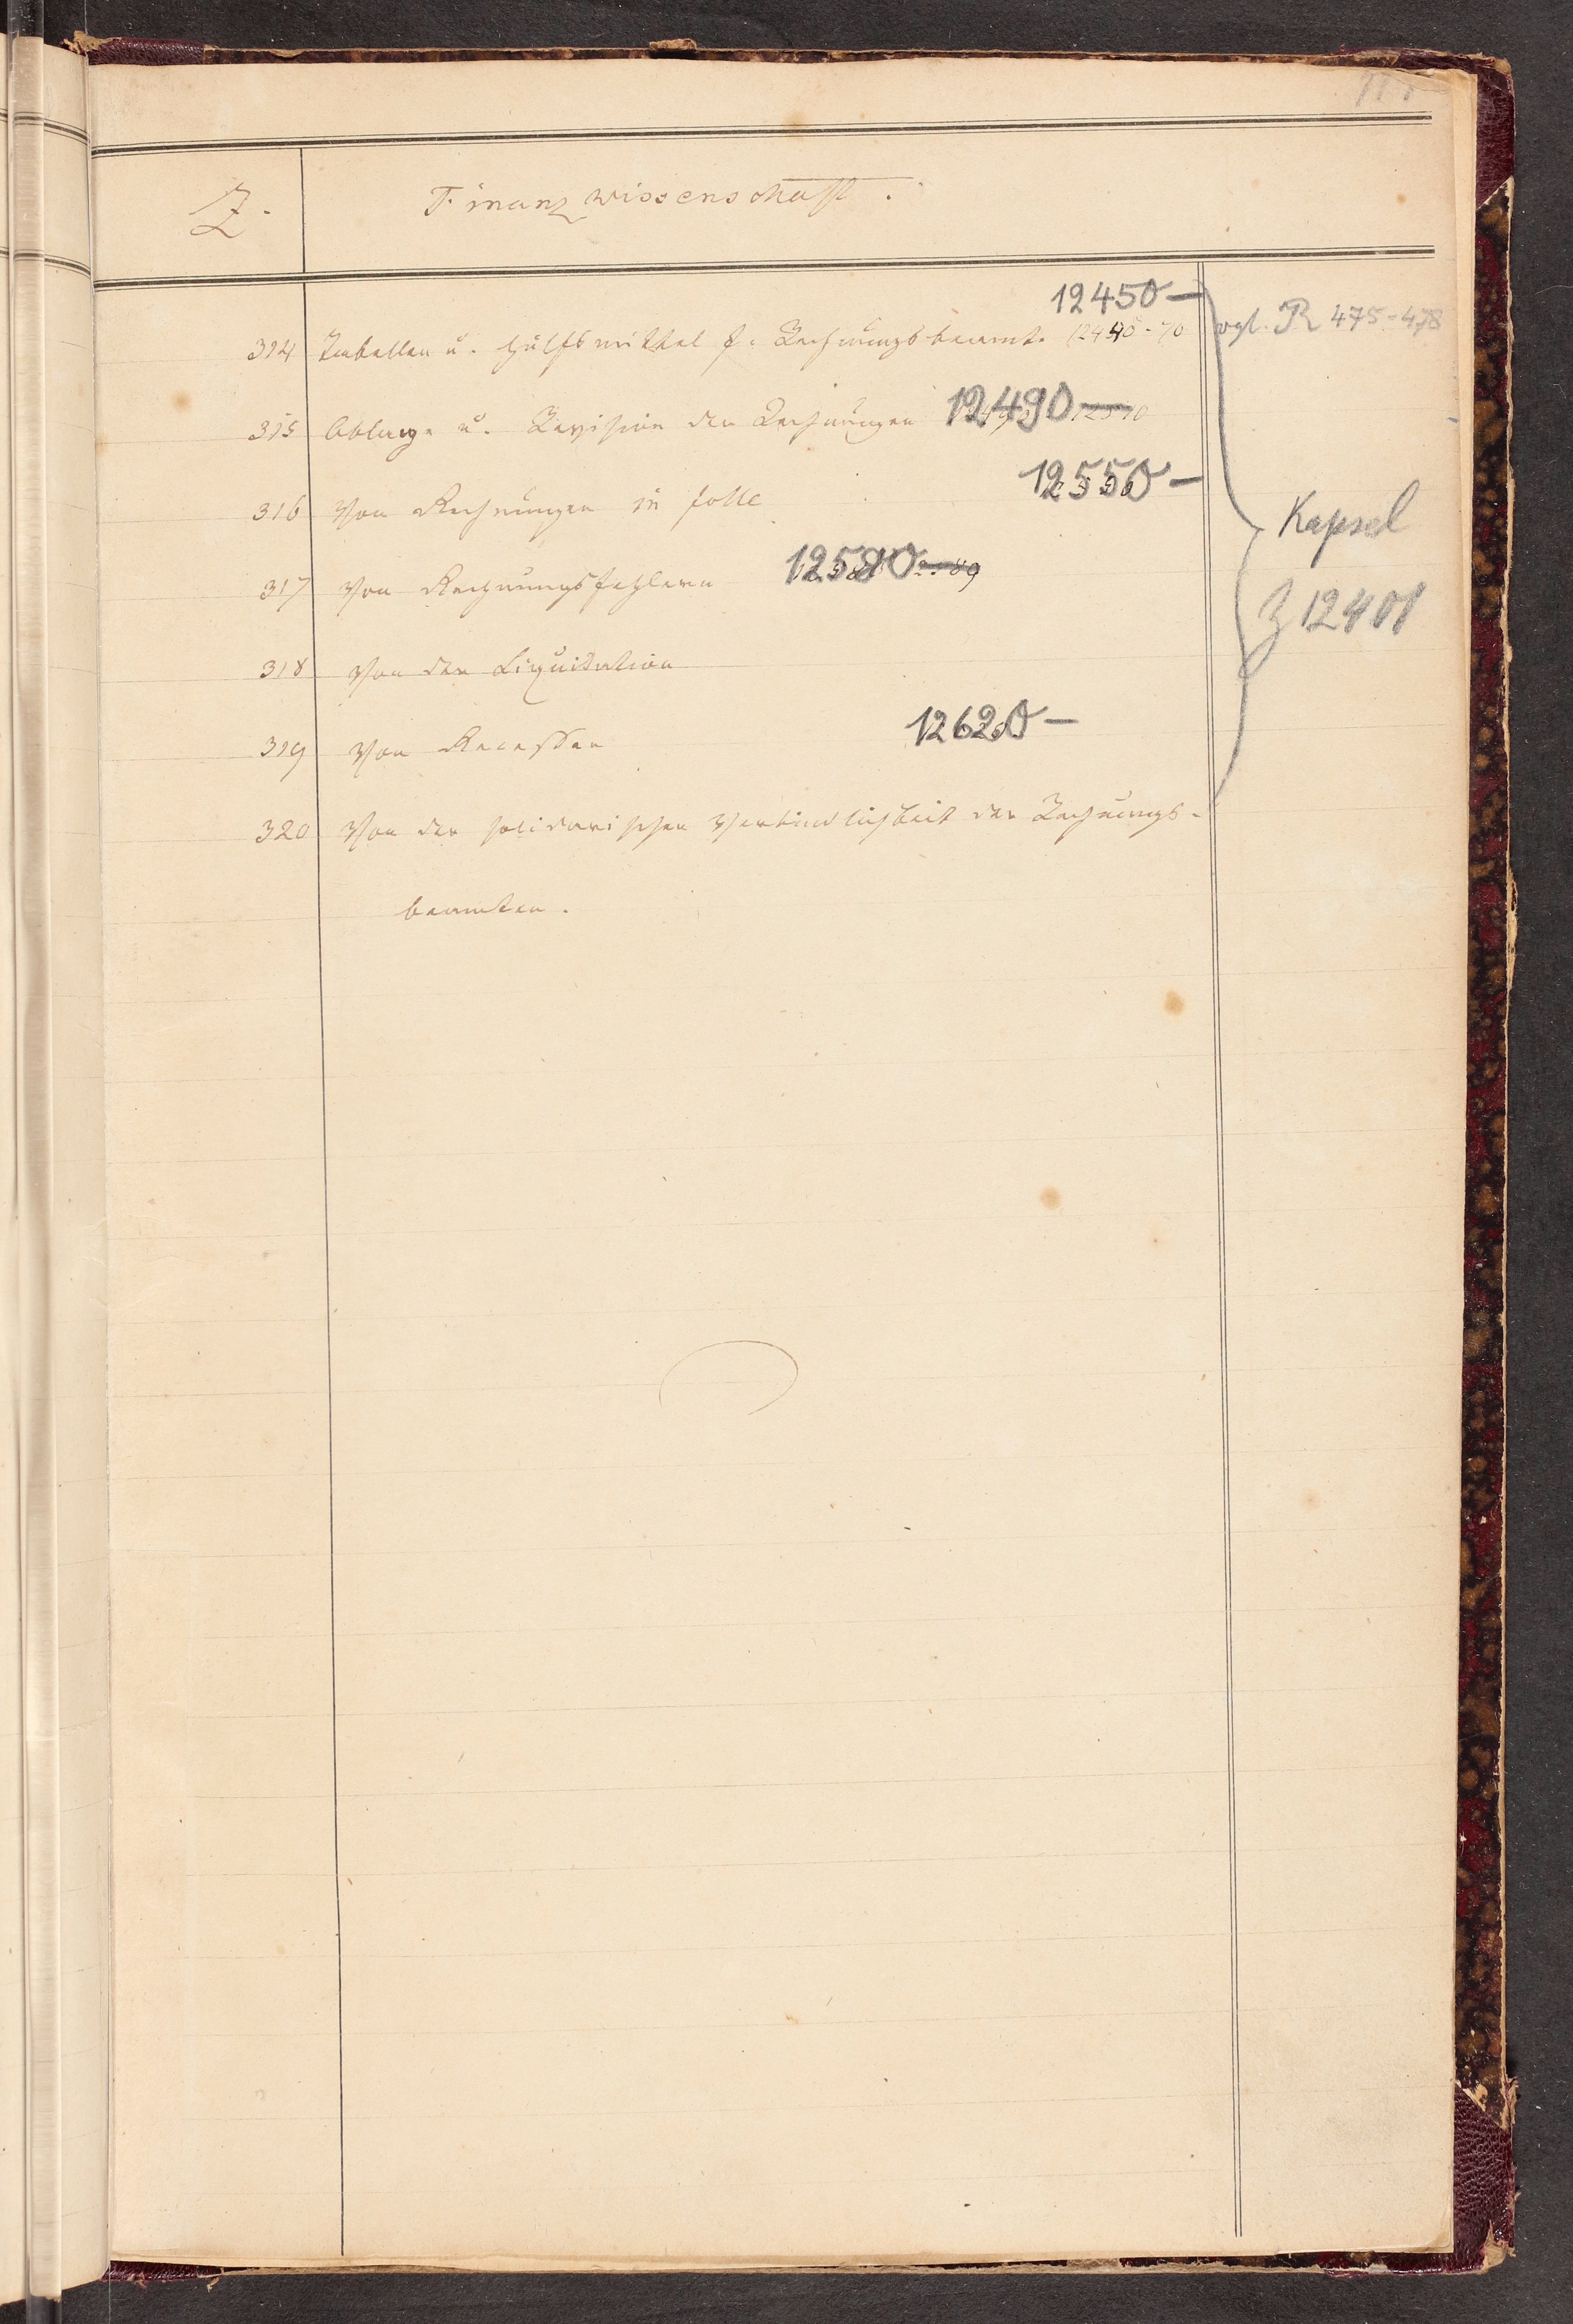 Z. Finanzwissenschaft.
12450—
314 Tabellen u. Hülfsmittel f. Rechnungsbeamte 12440-70 vgl. R 475-478
315 Ablage u. Revision der Rechnungen 12490—
12550—
316 Von Rechnungen in folle
Kapsel
317 Von Rechnungsfehlern 12580—
Z 12401
318 Von der Liquidation
12620—
319 Von Recessen
320 Von der solidarischen Verbindlichkeit der Rechnungs-
beamten.